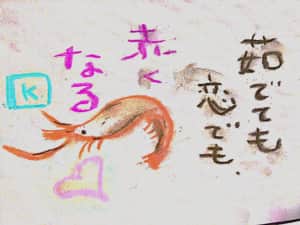 茹でても
恋でも
赤く
なる
K